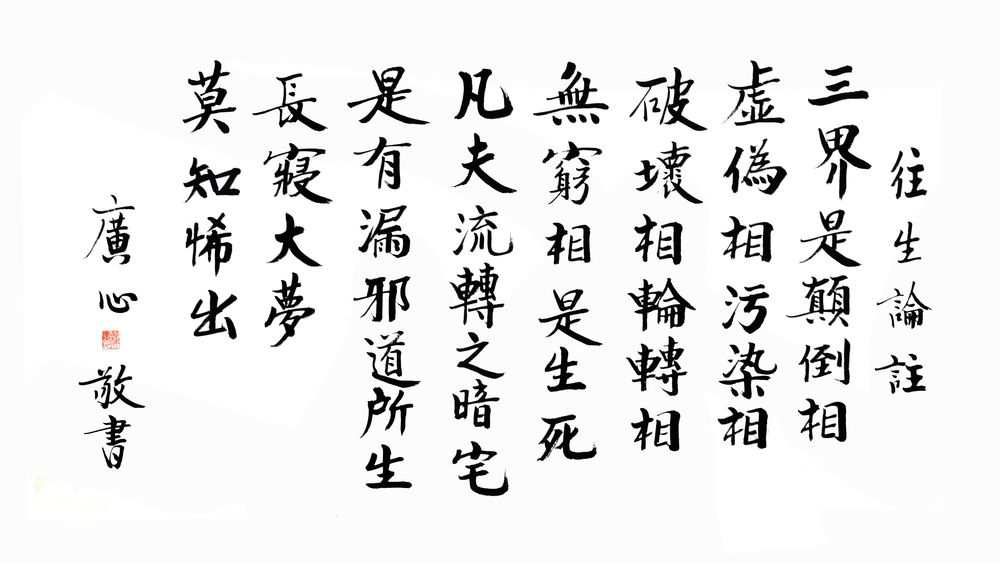 往生論註
三界是顛倒相
虛偽相污染相
破壞相輪轉相
無窮相是生死
凡夫流轉之暗宅
是有漏邪道所生
長寢大夢
莫知悕出
廣心
敬書